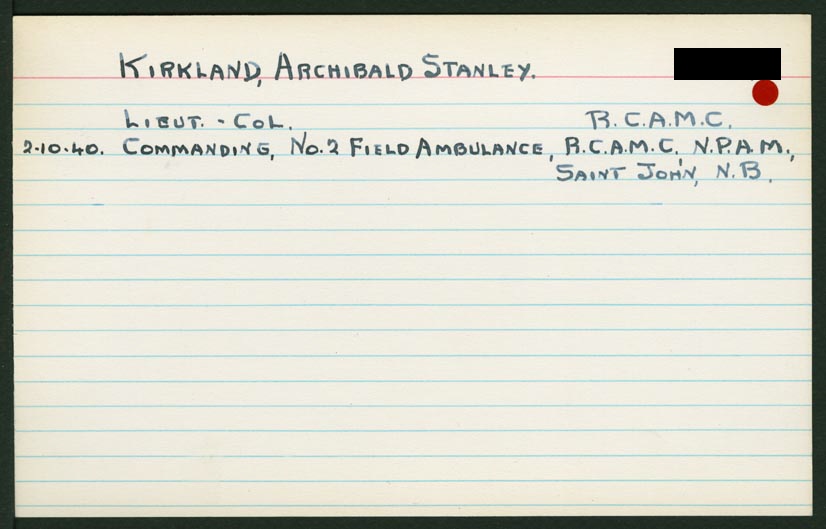 KIRKLAND, ARCHIBALD STANLEY.
LIEUT. - COL. R.C.A.M.C.
2-10-40. COMMANDING, No. 2 FIELD AMBULANCE, R.C.A.M.C. N.P.A.M.,
SAINT JOHN, N.B.